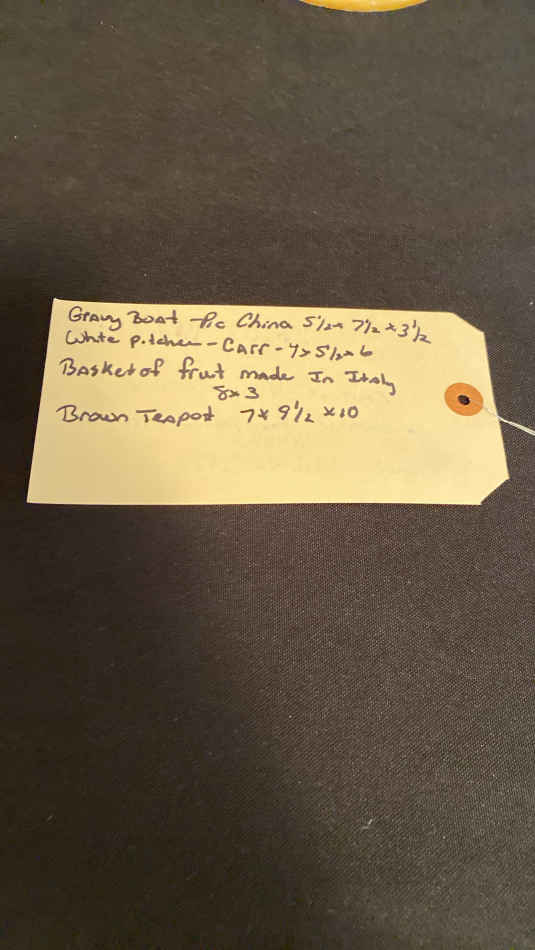 Gravy Boat - Pic China 5 1/2 x 7 1/2 x 3 1/2
White Pitcher - CArr - 4 x 5 1/2 x 6
Basket of fruit made In Italy
8 x 3
Brown Teapot 7 x 9 1/2 x 10